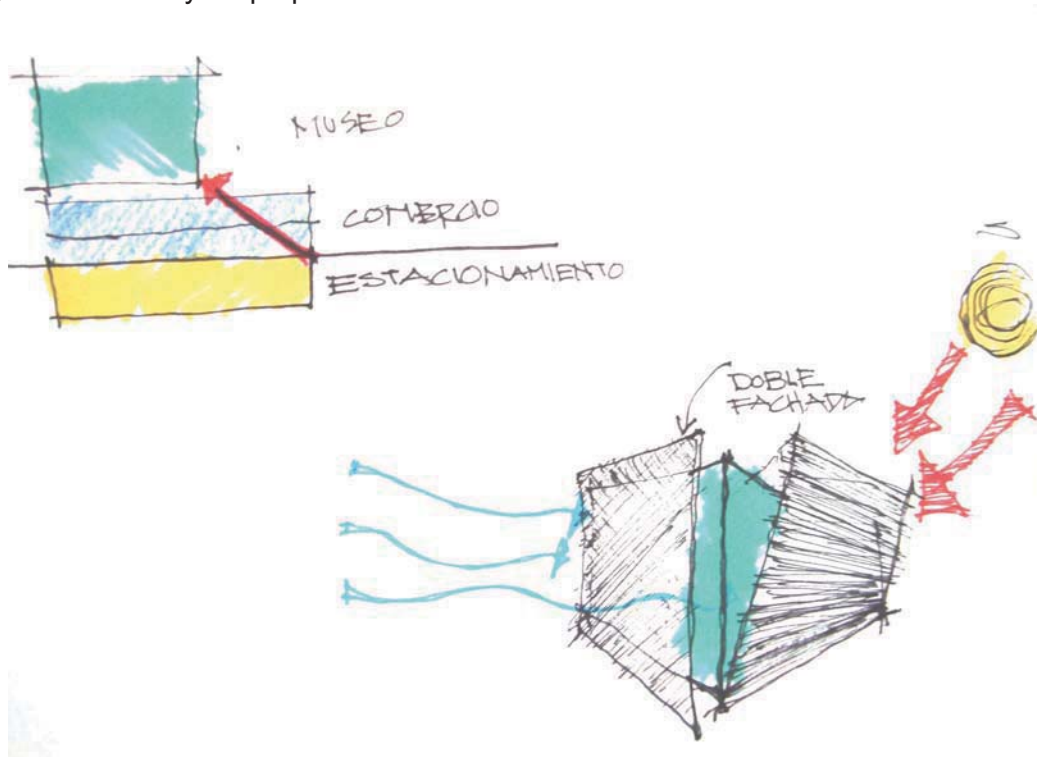 MUSEO
COMERCIO
ESTACIONAMIENTO
S
DOBLE
FACHADA